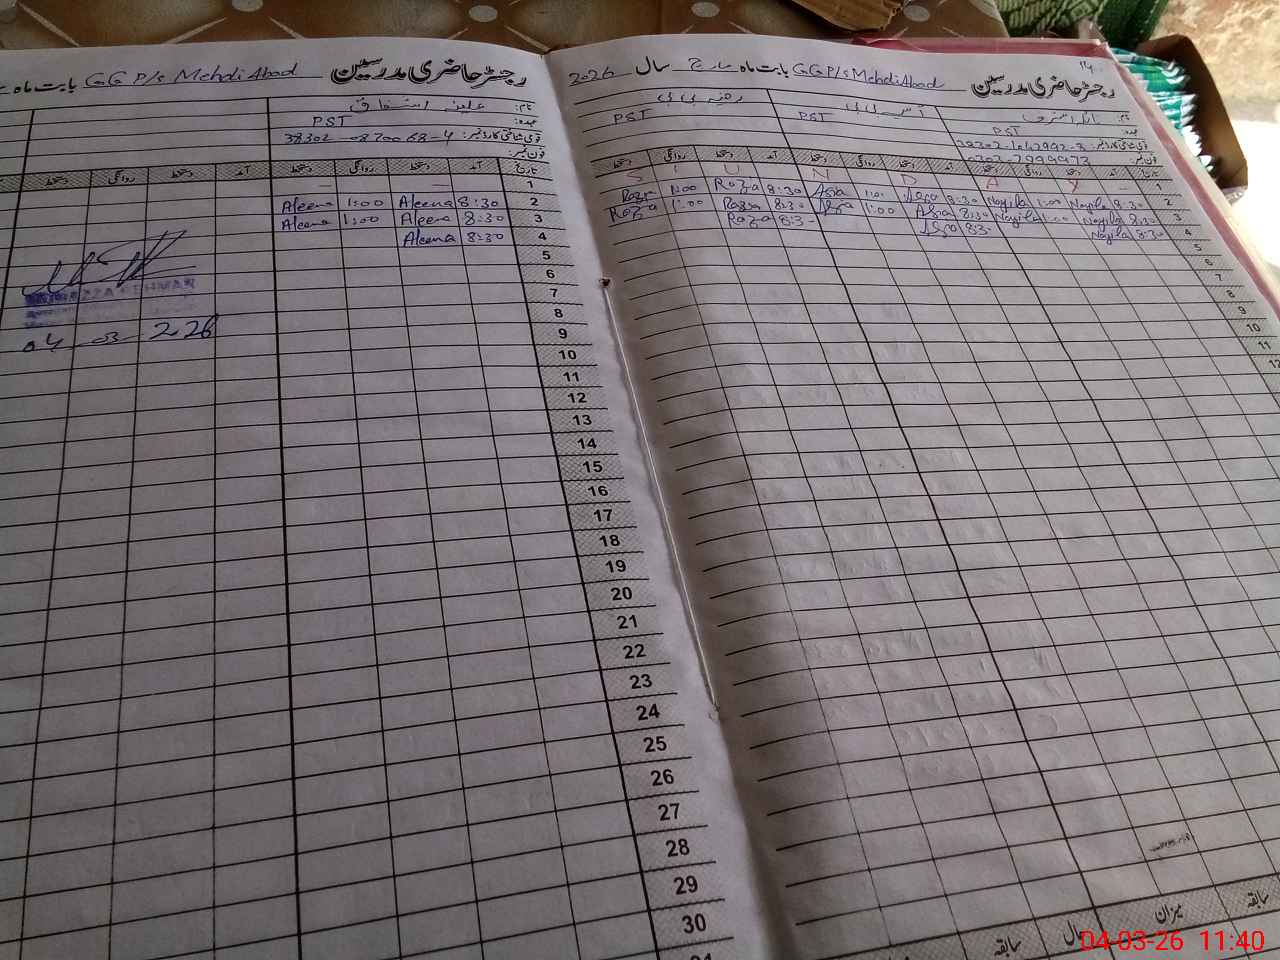 رجسٹر حاضری مدرسین بابت ماہ GGP/s Mehdi Abad
نام: علینہ اشفاق
عہدہ: PST
قومی شناختی کارڈ نمبر: 38302-0870068-4
فون نمبر:
تاریخ آمد دستخط روانگی دستخط آمد دستخط روانگی دستخط
1 — —
2 8:30 Aleena 1:00 Aleena
3 8:30 Aleena 1:00 Aleena
4 8:30 Aleena
5
6
7
8
9
10
11
12
13
14
15
16
17
18
19
20
21
22
23
24
25
26
27
28
29
30
31
04-03-2026
14
رجسٹر حاضری مدرسین GGP/s Mehdi Abad بابت ماہ مارچ سال 2026
نام:
عہدہ: PST PST PST
قومی شناختی کارڈ نمبر:
فون نمبر:
تاریخ آمد دستخط روانگی دستخط آمد دستخط روانگی دستخط آمد دستخط روانگی دستخط
1 S U N D A Y
2 8:30 Nayila 1:00 Nayila 8:30 Asia 1:01 Asia 8:30 Roza 1:00
3 8:30 Nayila 1:00 Nayila 8:30 Asia 1:00 Asia 8:30 Roza 1:00 Roza
4 8:30 Nayila 8:30 Asia 8:30 Roza
5
6
7
8
9
10
11
12
سابقہ میزان حال سابقہ
04-03-26 11:40